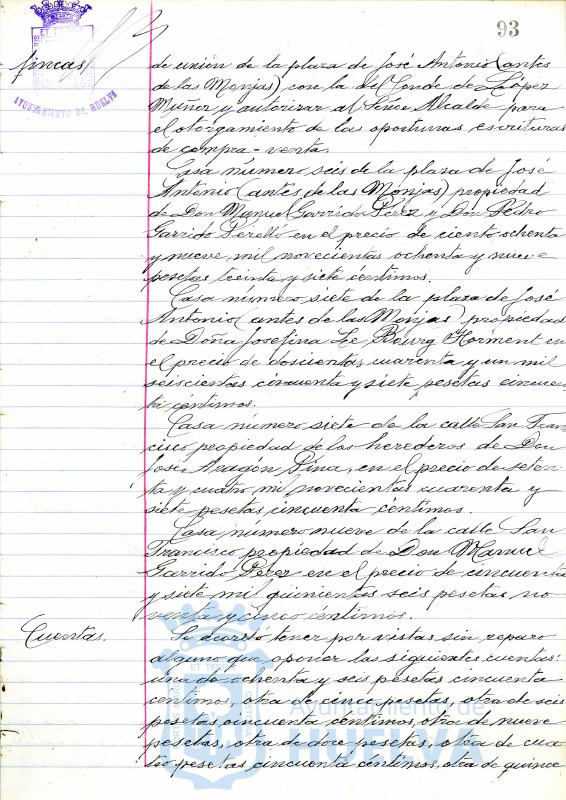 93
fincas
AYUNTAMIENTO DE HUELVA
de unión de la plaza de José Antonio (antes
de las Monjas) con la del Conde de López
Muñoz y autorizar al Señor Alcalde para
el otorgamiento de las oportunas escrituras
de compra-venta.
Casa número seis de la plaza de José
Antonio (antes de las Monjas) propiedad
de Don Manuel Garrido Pérez y Don Pedro
Garrido Perelló en el precio de ciento ochenta
y nueve mil novecientas ochenta y nueve
pesetas treinta y siete céntimos.
Casa número siete de la plaza de José
Antonio (antes de las Monjas) propiedad
de Doña Josefina Le Bourg Horment en
el precio de doscientas cuarenta y un mil
seiscientas cincuenta y siete pesetas cincuen
ta céntimos.
Casa número siete de la calle San Fran
cisco propiedad de los herederos de Don
José Aragón Pina, en el precio de seten
ta y cuatro mil novecientas cuarenta y
siete pesetas cincuenta céntimos.
Casa número nueve de la calle San
Francisco propiedad de Don Manuel
Garrido Pérez en el precio de cincuenta
y siete mil quinientas seis pesetas, no
venta y cinco céntimos.
Cuentas.
Se acordó tener por vistas sin reparo
alguno que oponer las siguientes cuentas:
una de ochenta y seis pesetas cincuenta
centimos, otra de cinco pesetas, otra de seis
pesetas cincuenta centimos, otra de nueve
pesetas, otra de doce pesetas, otra de cua
tro pesetas cincuenta céntimos, otra de quince
Ayuntamiento de
HUELVA